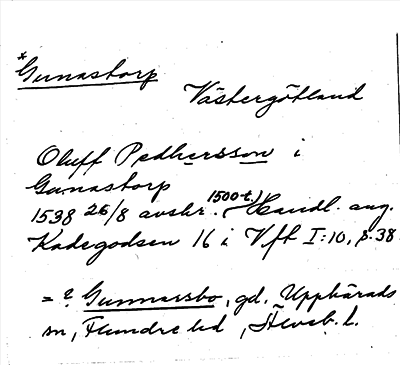 *Gunastorp
Västergötland
Oluff Pedhersson i
Gunastorp
1538 26/8 avskr. (1500-t.) Handl. ang.
Kadegodsen 16 i Vft I:10, s. 38.
= ? Gunnarsbo, gd. Uppkärads
sn, Flundre hd, Älvsb. l.